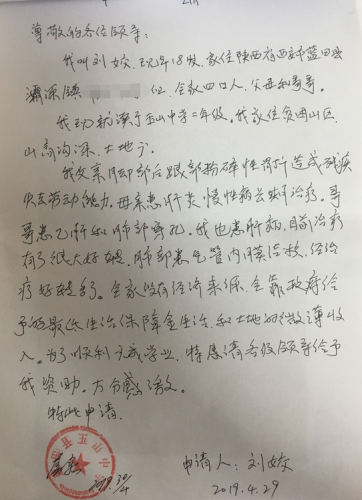 尊敬的各位领导:
我叫刘姣,现年18岁,家住陕西省西安市蓝田县
灞源镇 位,全家四口人,父母和哥哥。
我现就读于玉山中学二年级。我家住贫困山区,
山高沟深,土地少。
我父亲腰部后跟部粉碎性骨折造成残疾
失去劳动能力。母亲患肝炎慢性病长期治疗。哥
哥患乙肝和肺部穿孔。我也患肝病,目前治疗
有了很大好转,肺部患气管内膜结核,经治
疗好转多了。全家没有经济来源,全靠政府给
予的最低生活保障金生活和土地的微薄收
入。为了顺利完成学业,特恳请各级领导给予
我资助,万分感激。
特此申请。
县玉山中
2019.30/4
申请人:刘姣
2019.4.29